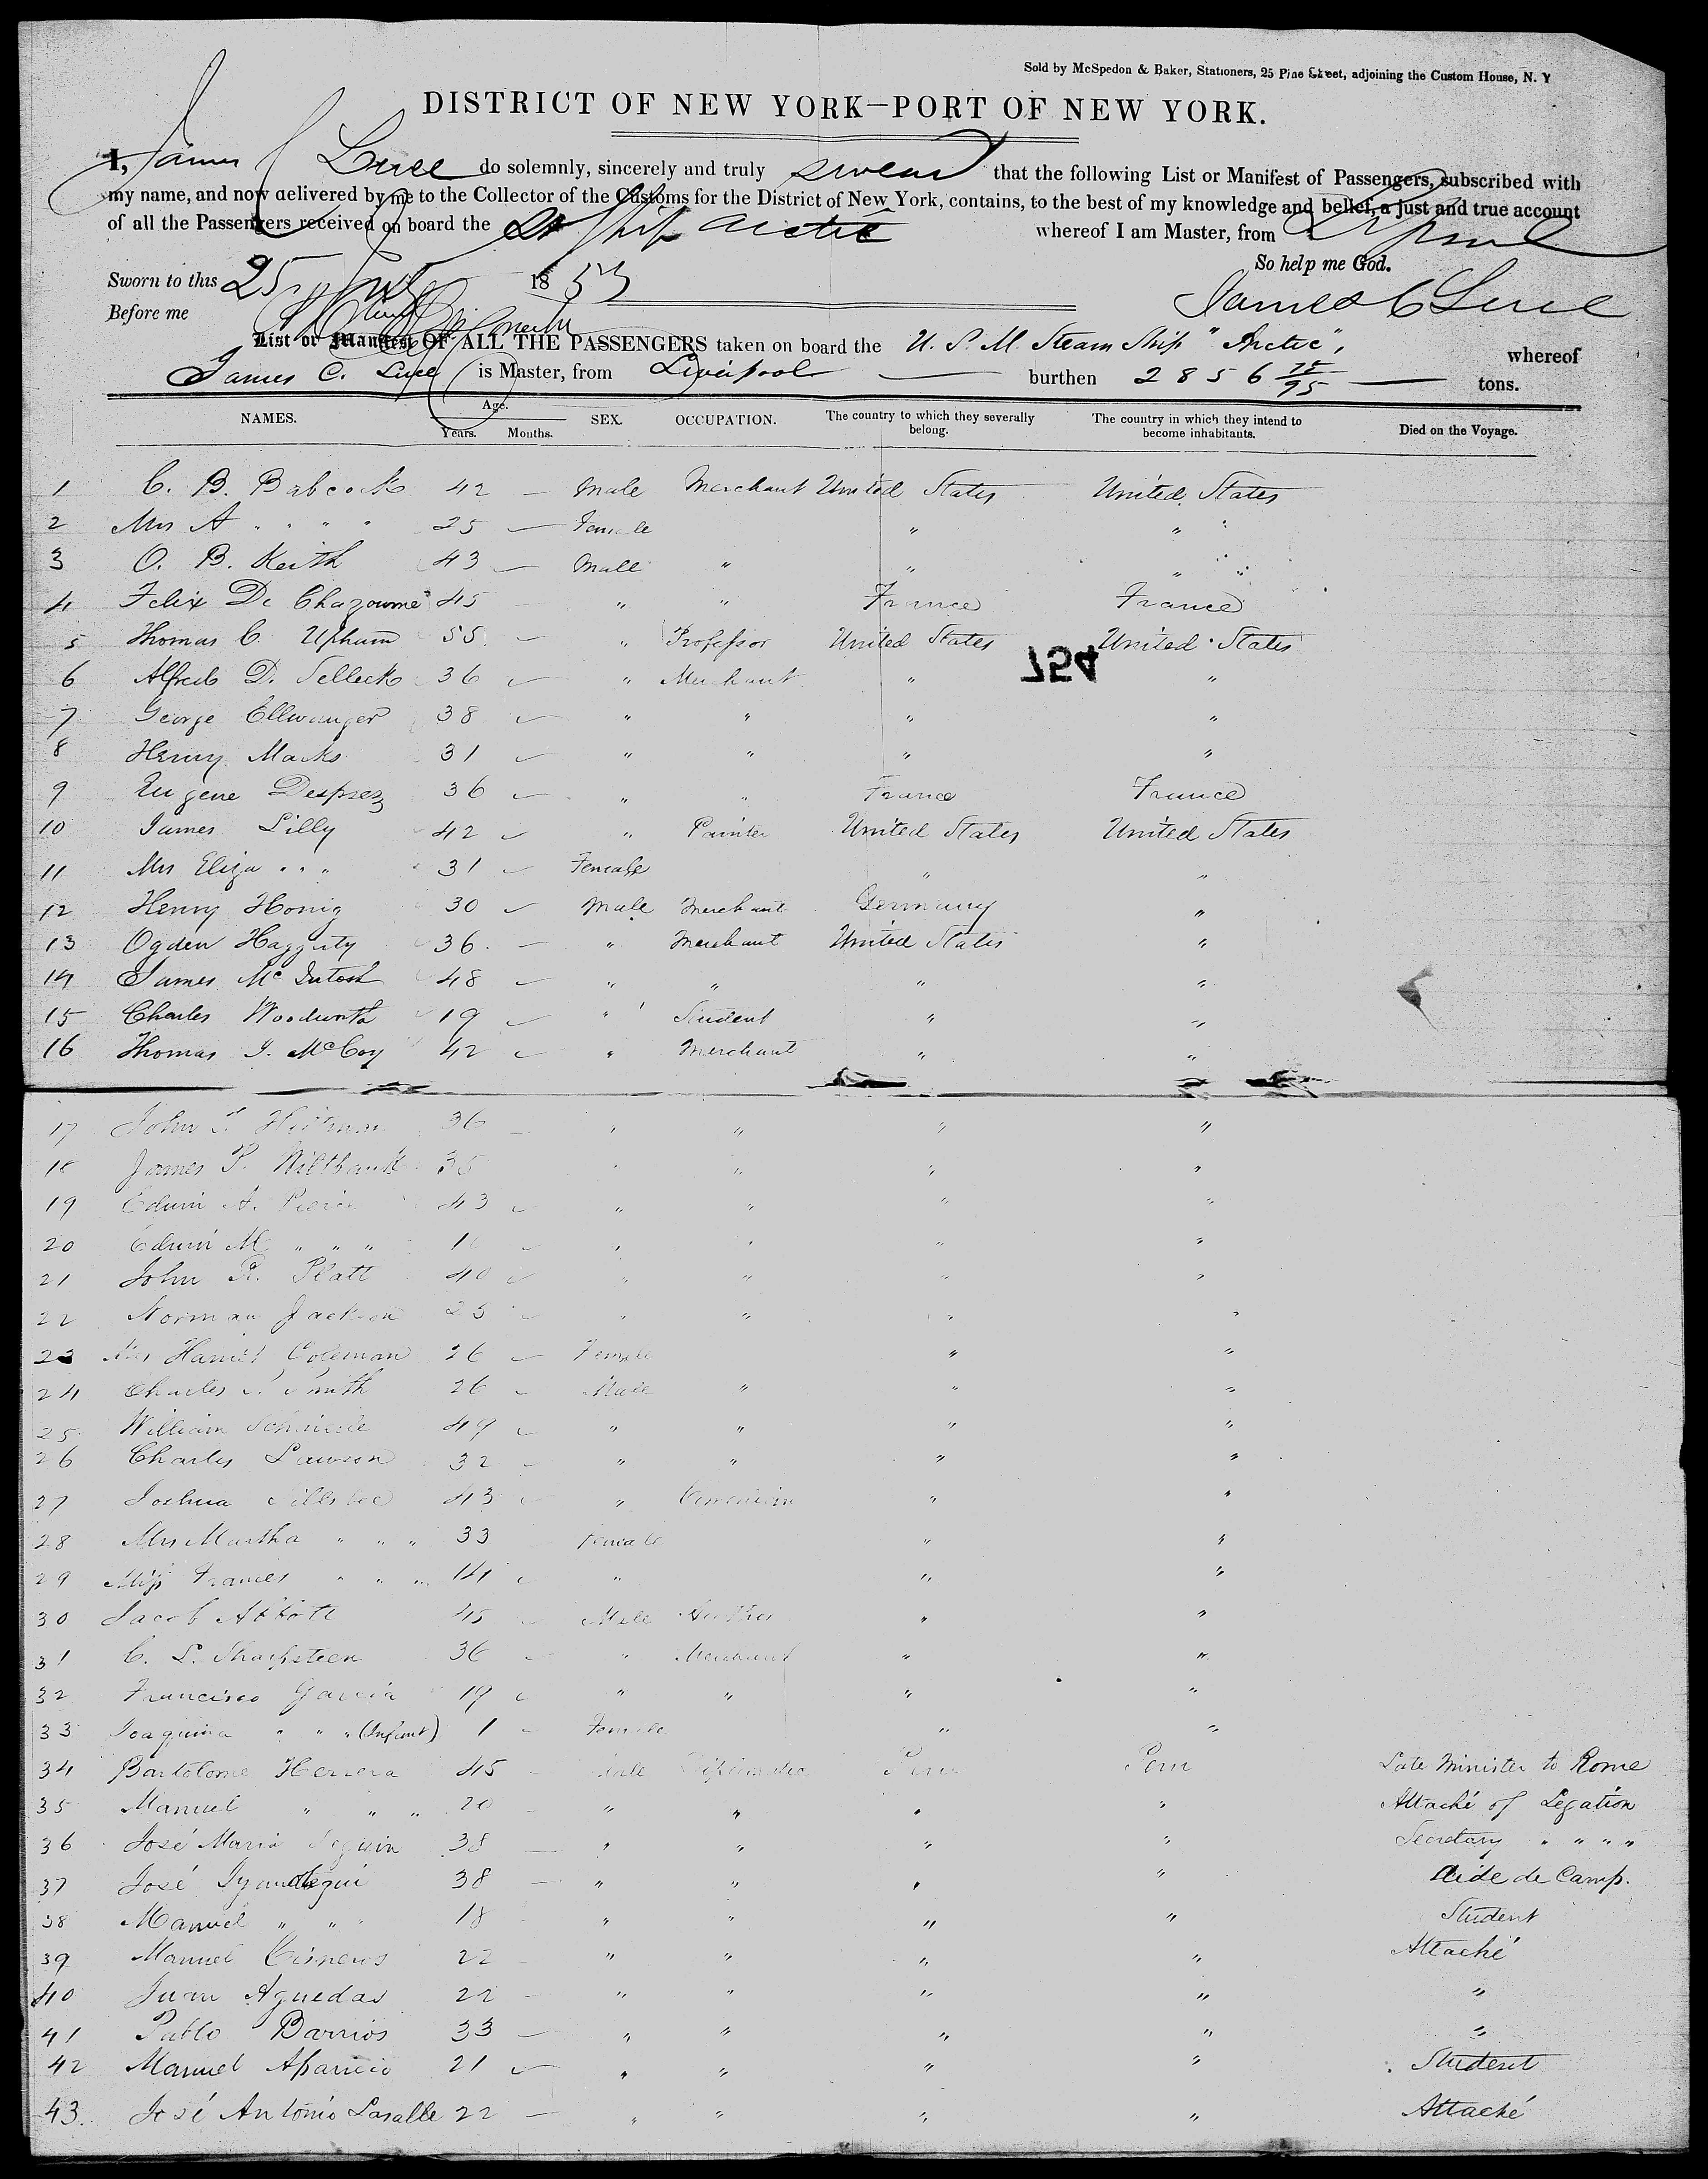 Sold by McSpedon & Baker, Stationers, 25 Pine Street, adjoining the Custom House, N. Y
DISTRICT OF NEW YORK—PORT OF NEW YORK.
I, James C Luce do solemnly, sincerely and truly swear that the following List or Manifest of Passengers, subscribed with
my name, and now delivered by me to the Collector of the Customs for the District of New York, contains, to the best of my knowledge and belief, a just and true account
of all the Passengers received on board the St Ship Arctic whereof I am Master, from Liverpool
So help me God.
Sworn to this 25 1853
James C Luce
Before me
List or Manifest OF ALL THE PASSENGERS taken on board the U. S. M. Steam Ship "Arctic", whereof
James C. Luce is Master, from Liverpool — burthen 2856 — tons.
NAMES. Age. Years. Months. SEX. OCCUPATION. The country to which they severally belong. The country in which they intend to become inhabitants. Died on the Voyage.
1 C. B. Babcock 42 — Male Merchant United States United States
2 Mrs A " " " 25 — Female " " "
3 O. B. Keith 43 — Male " " " "
4 Felix De 45 " " France France
5 Thomas C. Upham 55 — " Professor United States United States
754
6 Alfred D. Selleck 36 " Merchant " "
7 George Ellwanger 38 " " " "
8 Henry Marks 31 " " " "
9 Eugene Desprez 36 " " France France
10 James Lilly 42 " Painter United States United States
11 Mrs Eliza " " " 31 Female " "
12 Henry Honig 30 Male Merchant Germany "
13 Ogden Haggerty 36 — " Merchant United States "
14 James McIntosh 48 " " " "
15 Charles Woodworth 19 " Student " "
16 Thomas J. McCoy 42 " Merchant " "
17 John 36 " " " "
18 James P. Wiltbank 35 " " " "
19 Edwin A. Pierce 43 " " " "
20 Edwin M " " " " " " "
21 John R. Platt 40 " " " "
22 Norman Jackson 25 " " " "
23 Harriet Coleman 26 — Female " "
24 Charles Smith 26 Male " " "
25 William 49 " " " "
26 Charles Lawson 32 " " " "
27 Joshua Silsbee 43 " Comedian " "
28 Mrs Martha " " " 33 Female " "
29 Miss Frances " " " 14 " " "
30 Jacob Abbott 45 Male Author " "
31 C. L. Sharpsteen 36 " Merchant " "
32 Francisco Garcia 19 " " " "
33 Joaquina " " " (Infant) 1 Female " "
34 Bartolome Herrera 45 Male Peru Peru Late Minister to Rome
35 Manuel " " " 20 " " " " Attaché of Legation
36 José Maria Seguin 38 " " " " Secretary " " " "
37 José 38 — " " " " Aide de Camp.
38 Manuel " " " 18 " " " " Student
39 Manuel Cisneros 22 " " " " Attaché
40 Juan Aguedas 22 " " " " "
41 Pablo Barrios 33 — " " " " "
42 Manuel Aparicio 21 " " " " Student
43. José Antonio Lasalle 22 — " " " " Attaché